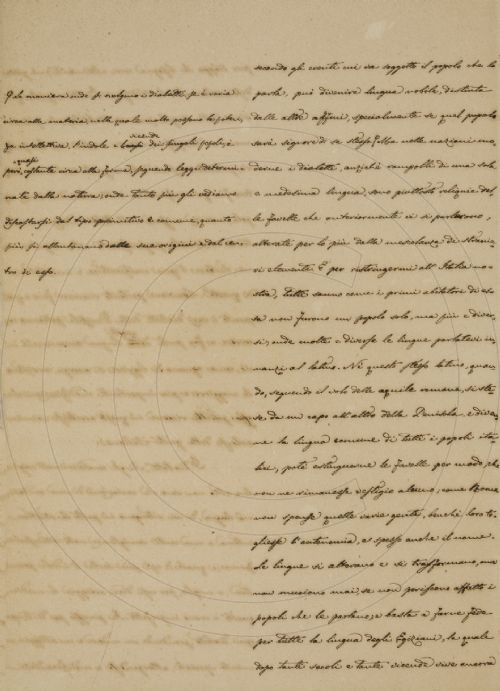 La maniera onde si svolgono i dialetti, se è varia
circa alla materia, nella quale molto possono la poten
za intellettiva, l'indole e le vicende dei singoli popoli, è
quasi
però, costante circa alla forma, seguendo legge determi-
nata dalla natura; onde tanto più gli vediamo
discostarsi dal tipo primitivo e comune, quanto
più si allontanano dalle sue origini e dal cen-
tro di esso.
secondo gli eventi cui va soggetto il popolo che la
parla, può divenire lingua nobile, distinta
dalle altre affini, specialmente se quel popolo
sarà signore di se stesso. Ma nelle nazioni mo-
derne i dialetti, anzichè rampolli di una sola
e medesima lingua, sono piuttosto reliquie del-
le favelle che anteriormente ci si parlavano,
alterate per lo più dalla mescolanza di stranie-
ri elementi. E per ristringermi all'Italia no-
stra, tutti sanno come i primi abitatori di es-
sa non furono un popolo solo, ma più e diver-
si; onde molte e diverse le lingue parlatevi in-
nanzi al latino. Nè questo stesso latino, quan-
do, seguendo il volo delle aquile romane, si ste-
se da un capo all'altro della Penisola, e diven-
ne la lingua comune di tutti i popoli ita-
lici, potè estinguerne le favelle per modo che
non ne rimanesse vestigio alcuno, come Roma
non spense quelle varie genti, benchè loro to-
gliesse l'autonomia, e spesso anche il nome.
Le lingue si alterano e si trasformano, ma
non muoiono mai, se non periscono affatto i
popoli che le parlano; e basta a farne fede
per tutte la lingua degli Egiziani, la quale
dopo tanti secoli e tante vicende vive ancora